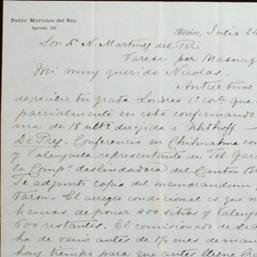 Pablo Martínez del Río
Apartado, 215
México, Julio 24
Sor. Dr. N. Martínez del Río
Varese por Masnago
Mi muy querido Nicolas,
Antier tuve
de recibir tu grata Londres 1º cort que
parcialmente en esta confirmando
ma de 18 ultº dirigida a
De Preg. Conferencia en Chihuahua con
y Valenzuela representante de Gar
la Compª deslindadora del Canton B
Te adjunto copia del memorandum
Varon. El arreglo condicional es que
hemos de poner 400 sitios y Valenz
600 restantes. El comisionado de
ha de venir antes de 1½ mes deman
hay tiempo para que antes